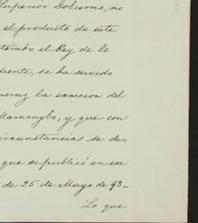 Superior Gobierno, no
el producto de este
el Rey de lo
diente, se ha servido
la exencion del
Maracaybo, y que con
circunstancias se de-
que se publicó en ese
de 25 de Mayo de 93-
Lo que